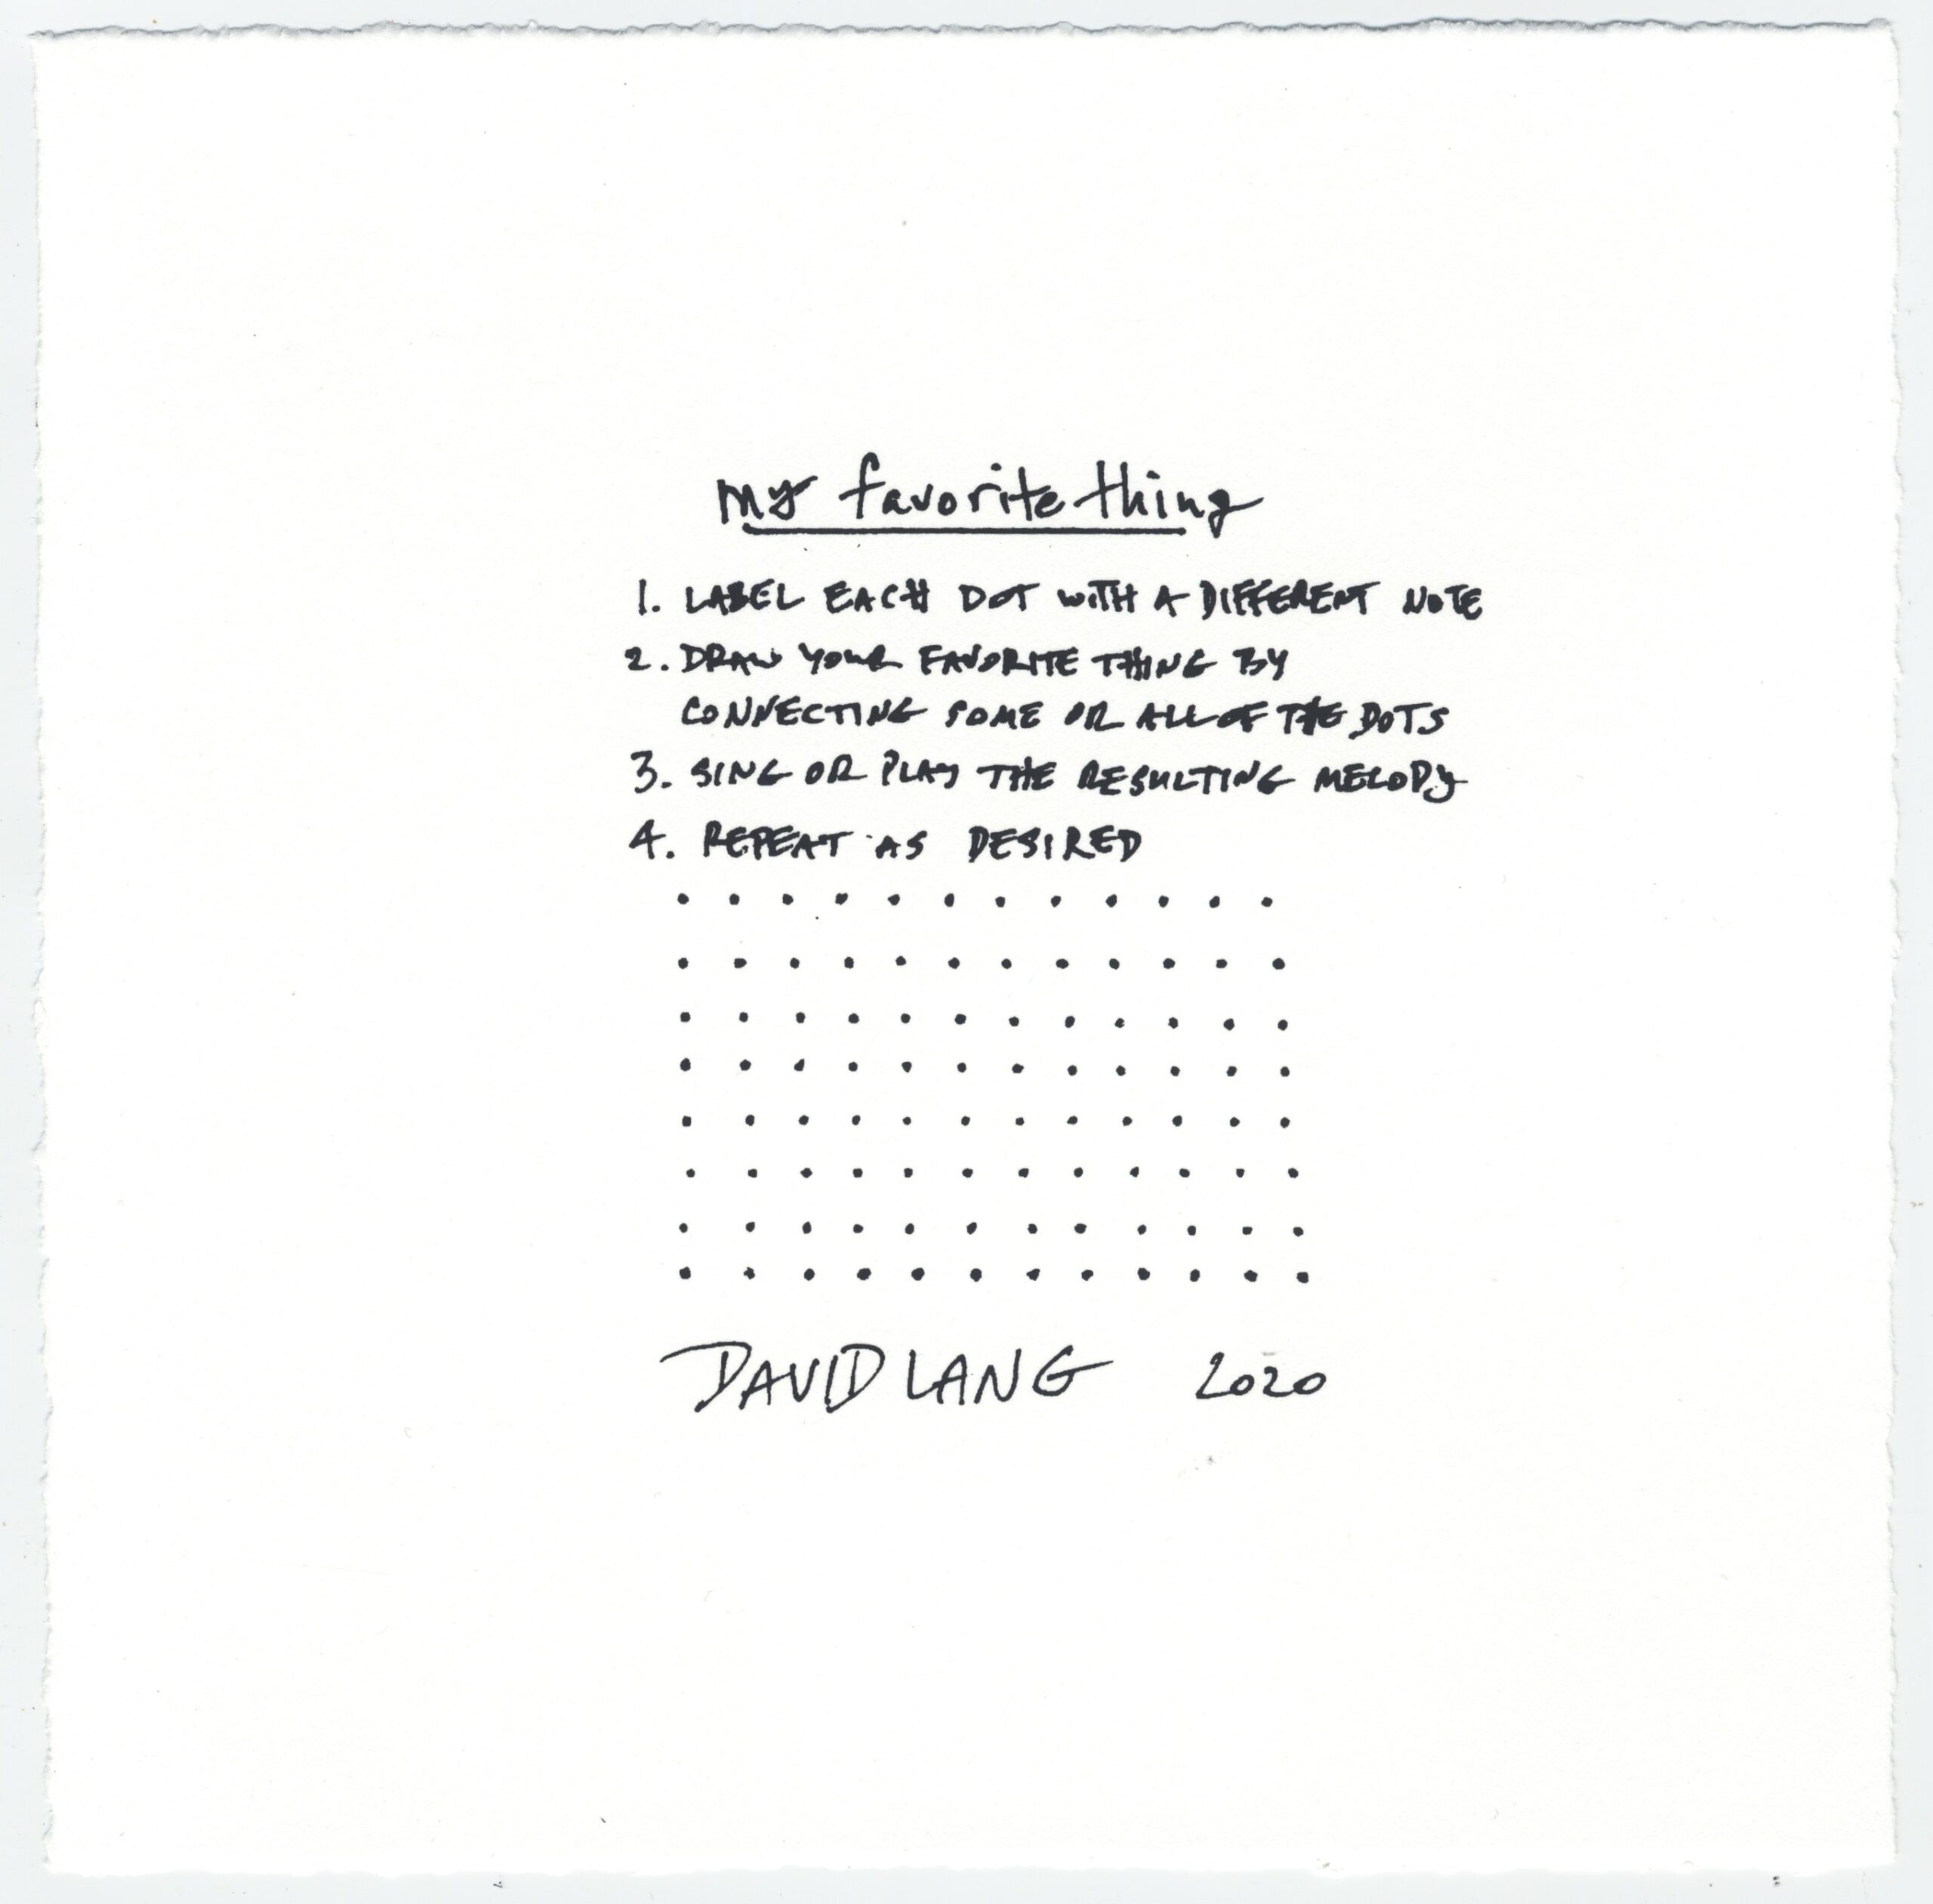 my favorite thing
1. LABEL EACH DOT WITH A DIFFERENT NOTE
2. DRAW YOUR FAVORITE THING BY
CONNECTING SOME OR ALL OF THE DOTS
3. SING OR PLAY THE RESULTING MELODY
4. REPEAT AS DESIRED
DAVID LANG 2020